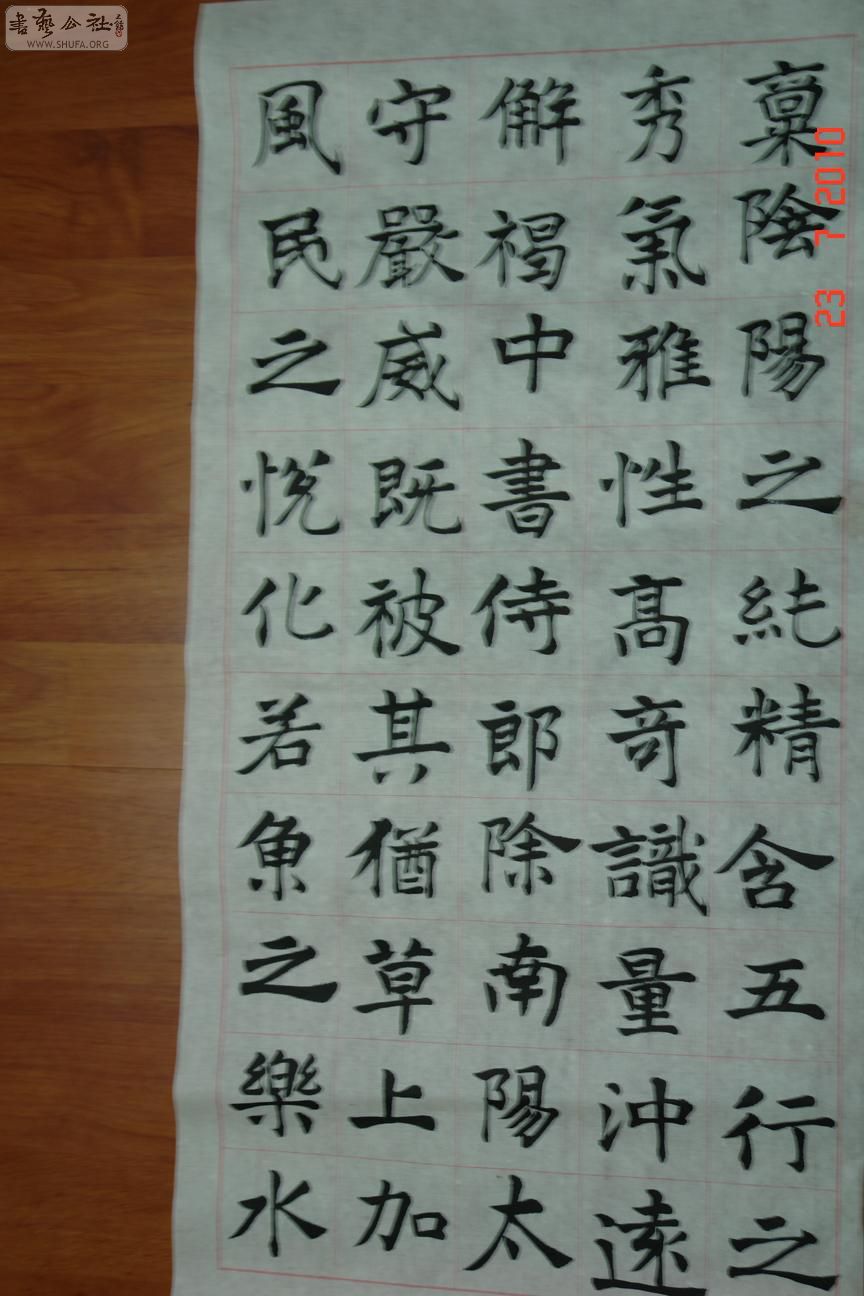 稟陰陽之純精含五行之
秀氣雅性高奇識量沖遠
解褐中書侍郎除南陽太
守嚴威既被其猶草上加
風民之悅化若魚之樂水
書藝公社
WWW.SHUFA.ORG
23 7 2010